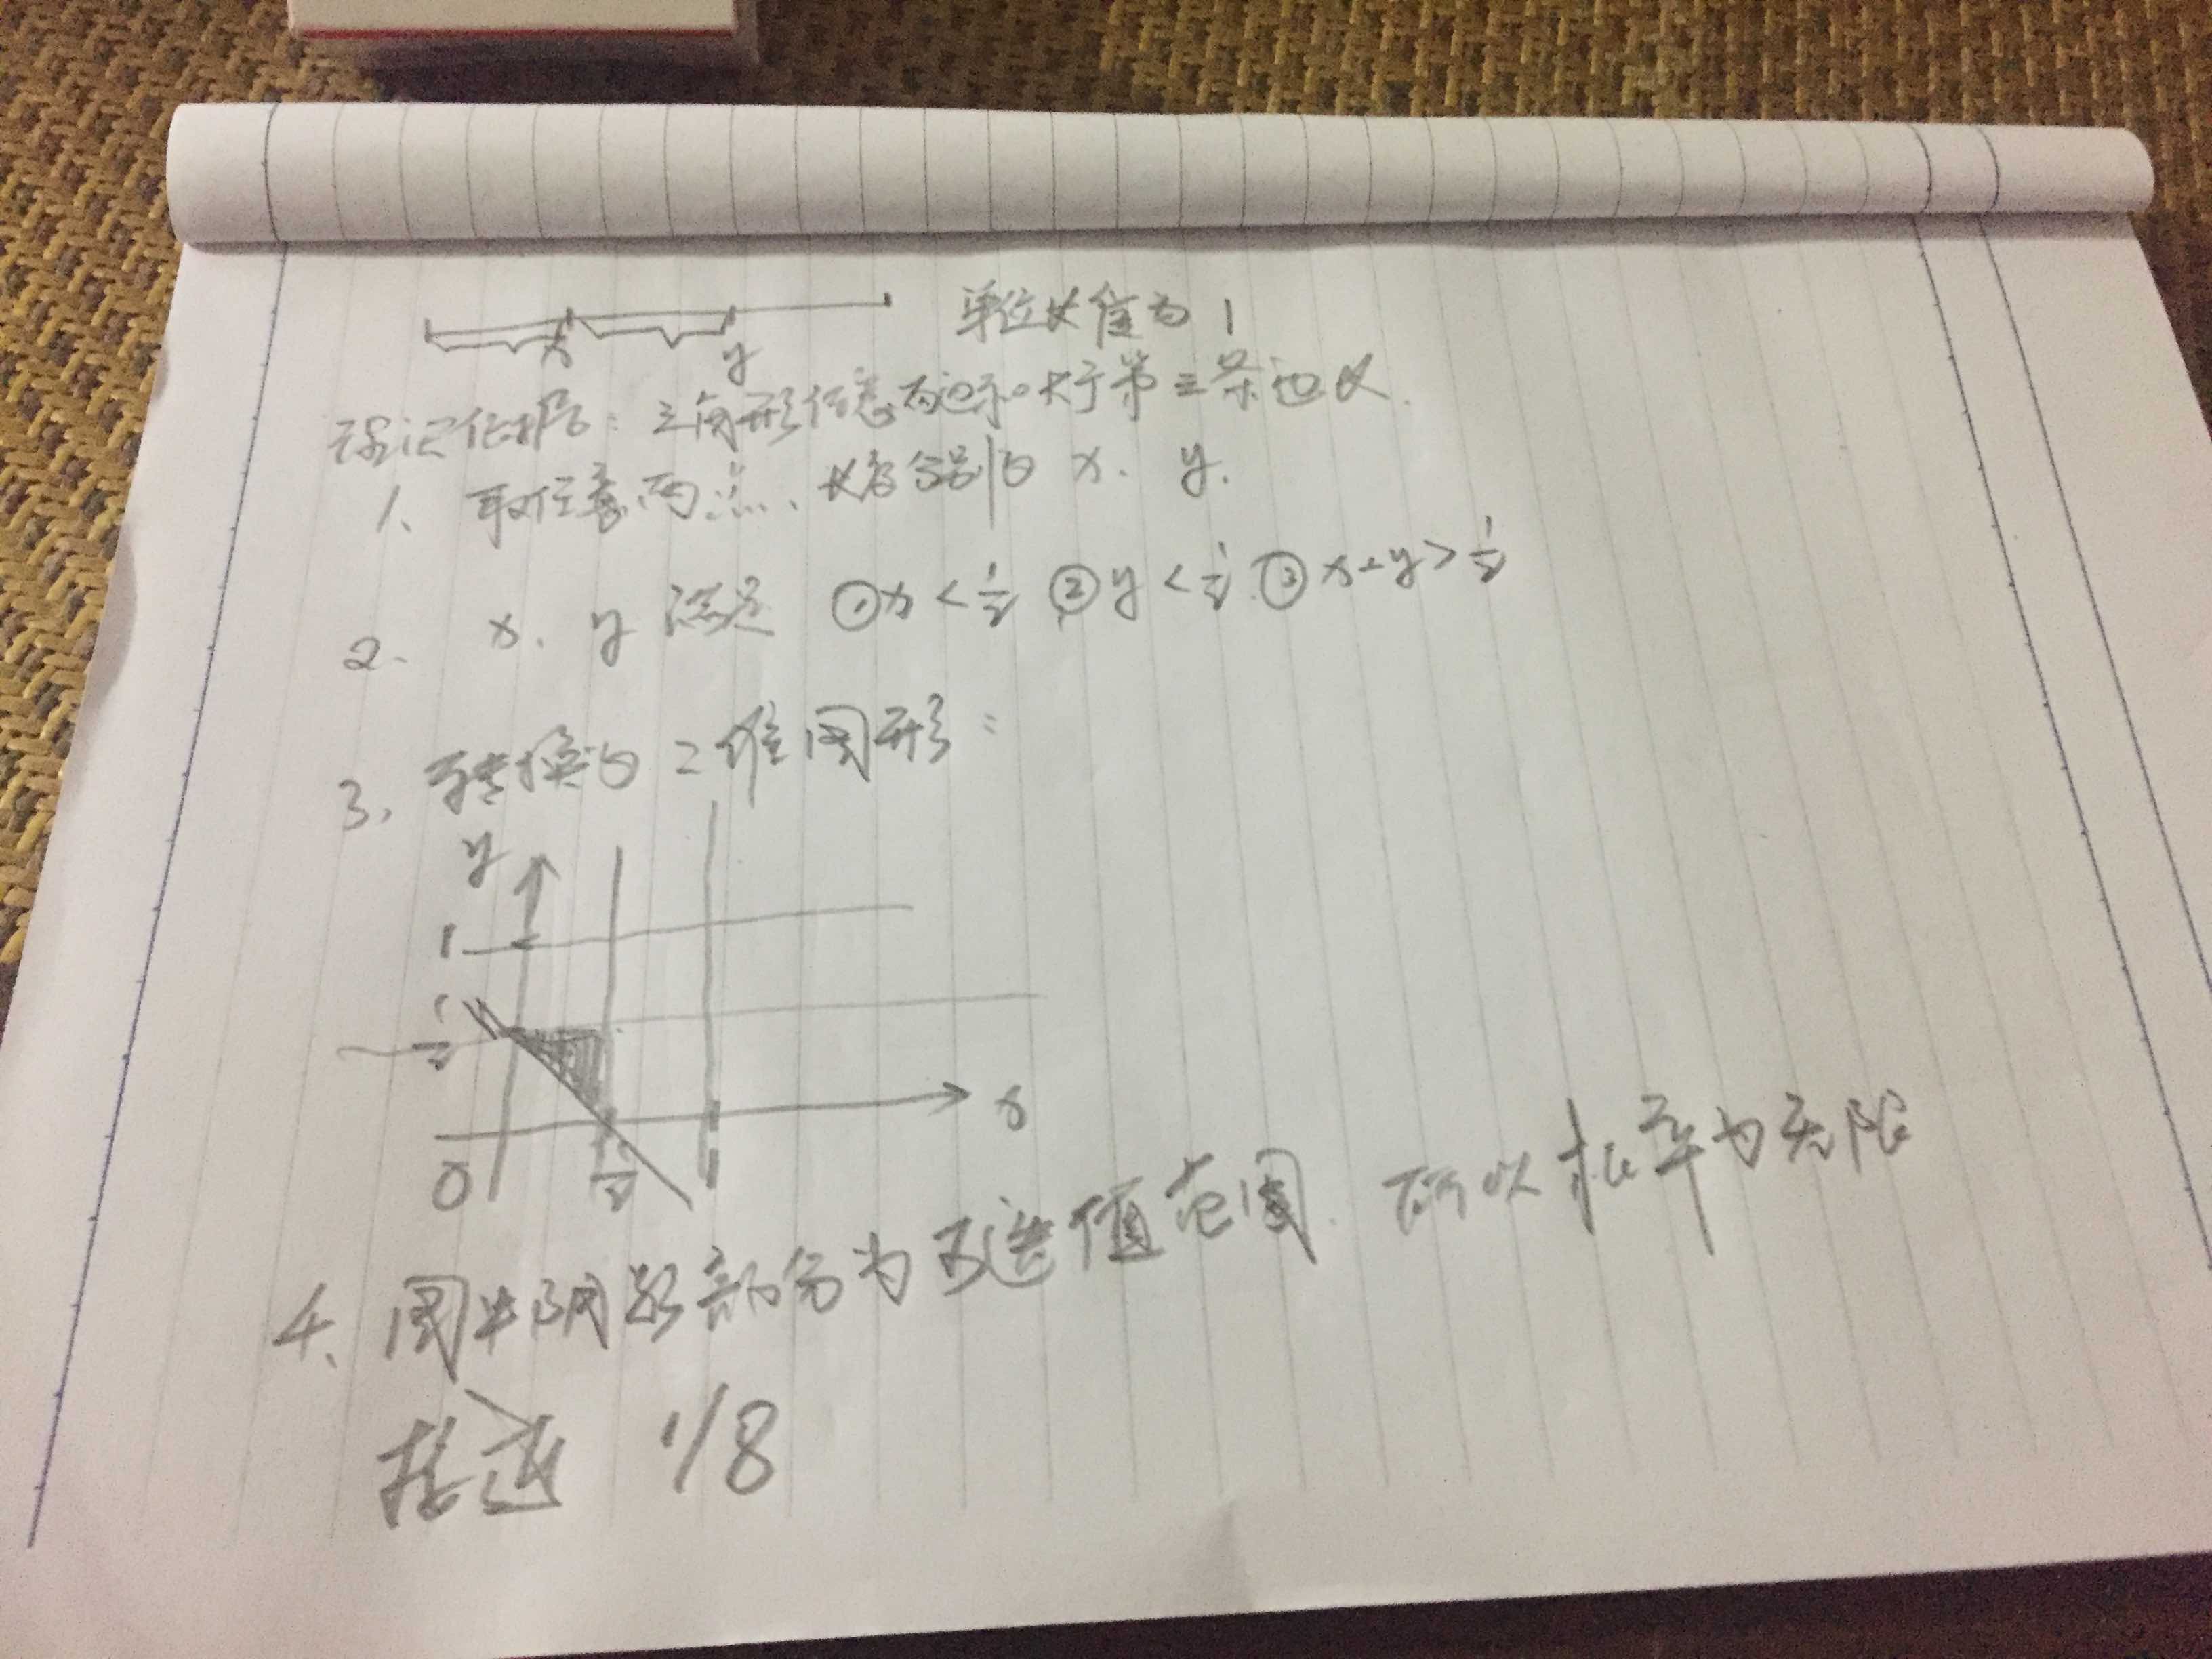 单位长值为 1
x
y
论记依据：三角形任意两边和大于第三条边长.
1、取任意两点、长度分别为 x. y.
2. x. y 满足 ①x < 1/2 ②y < 1/2 ③ x+y > 1/2
3、转换为二维图形：
y
1
1/2
x
0
1/2
1
4、图中阴影部分为可选值范围. 所以概率为无限
接近 1/8